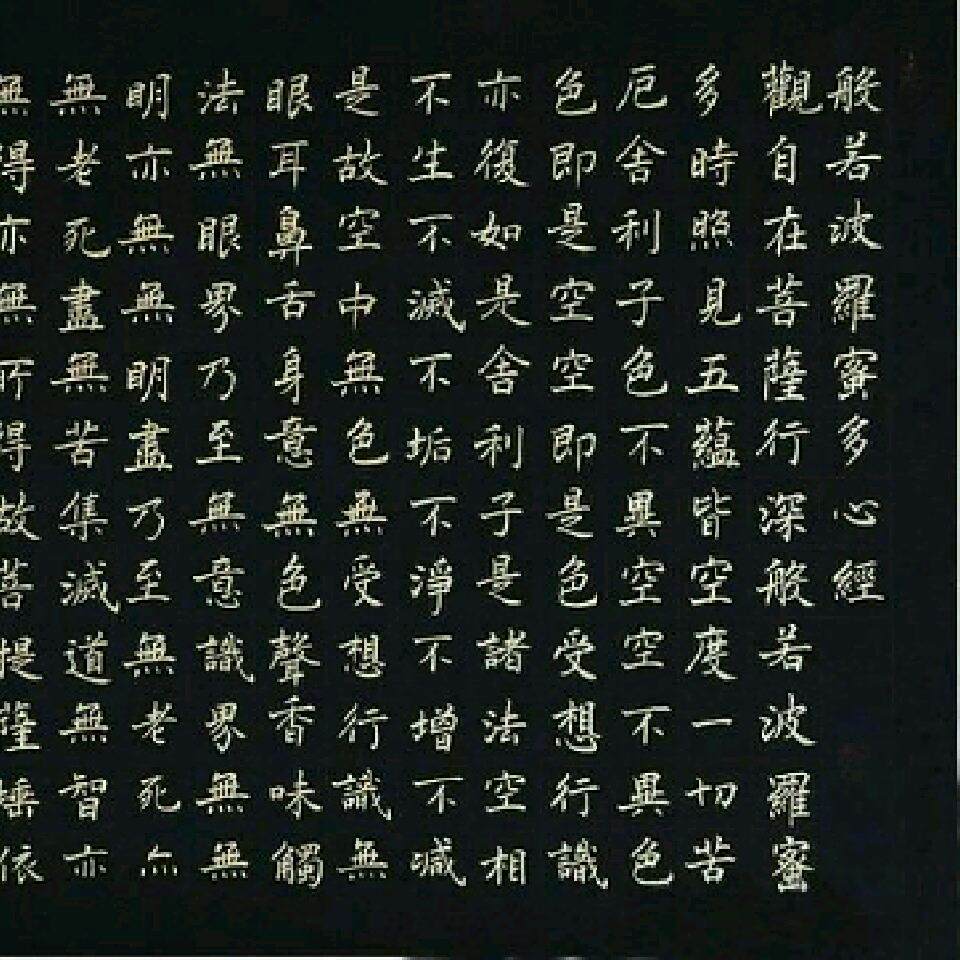 般若波羅蜜多心經
觀自在菩薩行深般若波羅蜜
多時照見五蘊皆空度一切苦
厄舍利子色不異空空不異色
色即是空空即是色受想行識
亦復如是舍利子是諸法空相
不生不滅不垢不淨不增不減
是故空中無色無受想行識無
眼耳鼻舌身意無色聲香味觸
法無眼界乃至無意識界無無
明亦無無明盡乃至無老死亦
無老死盡無苦集滅道無智亦
無得亦無所得故菩提薩埵依